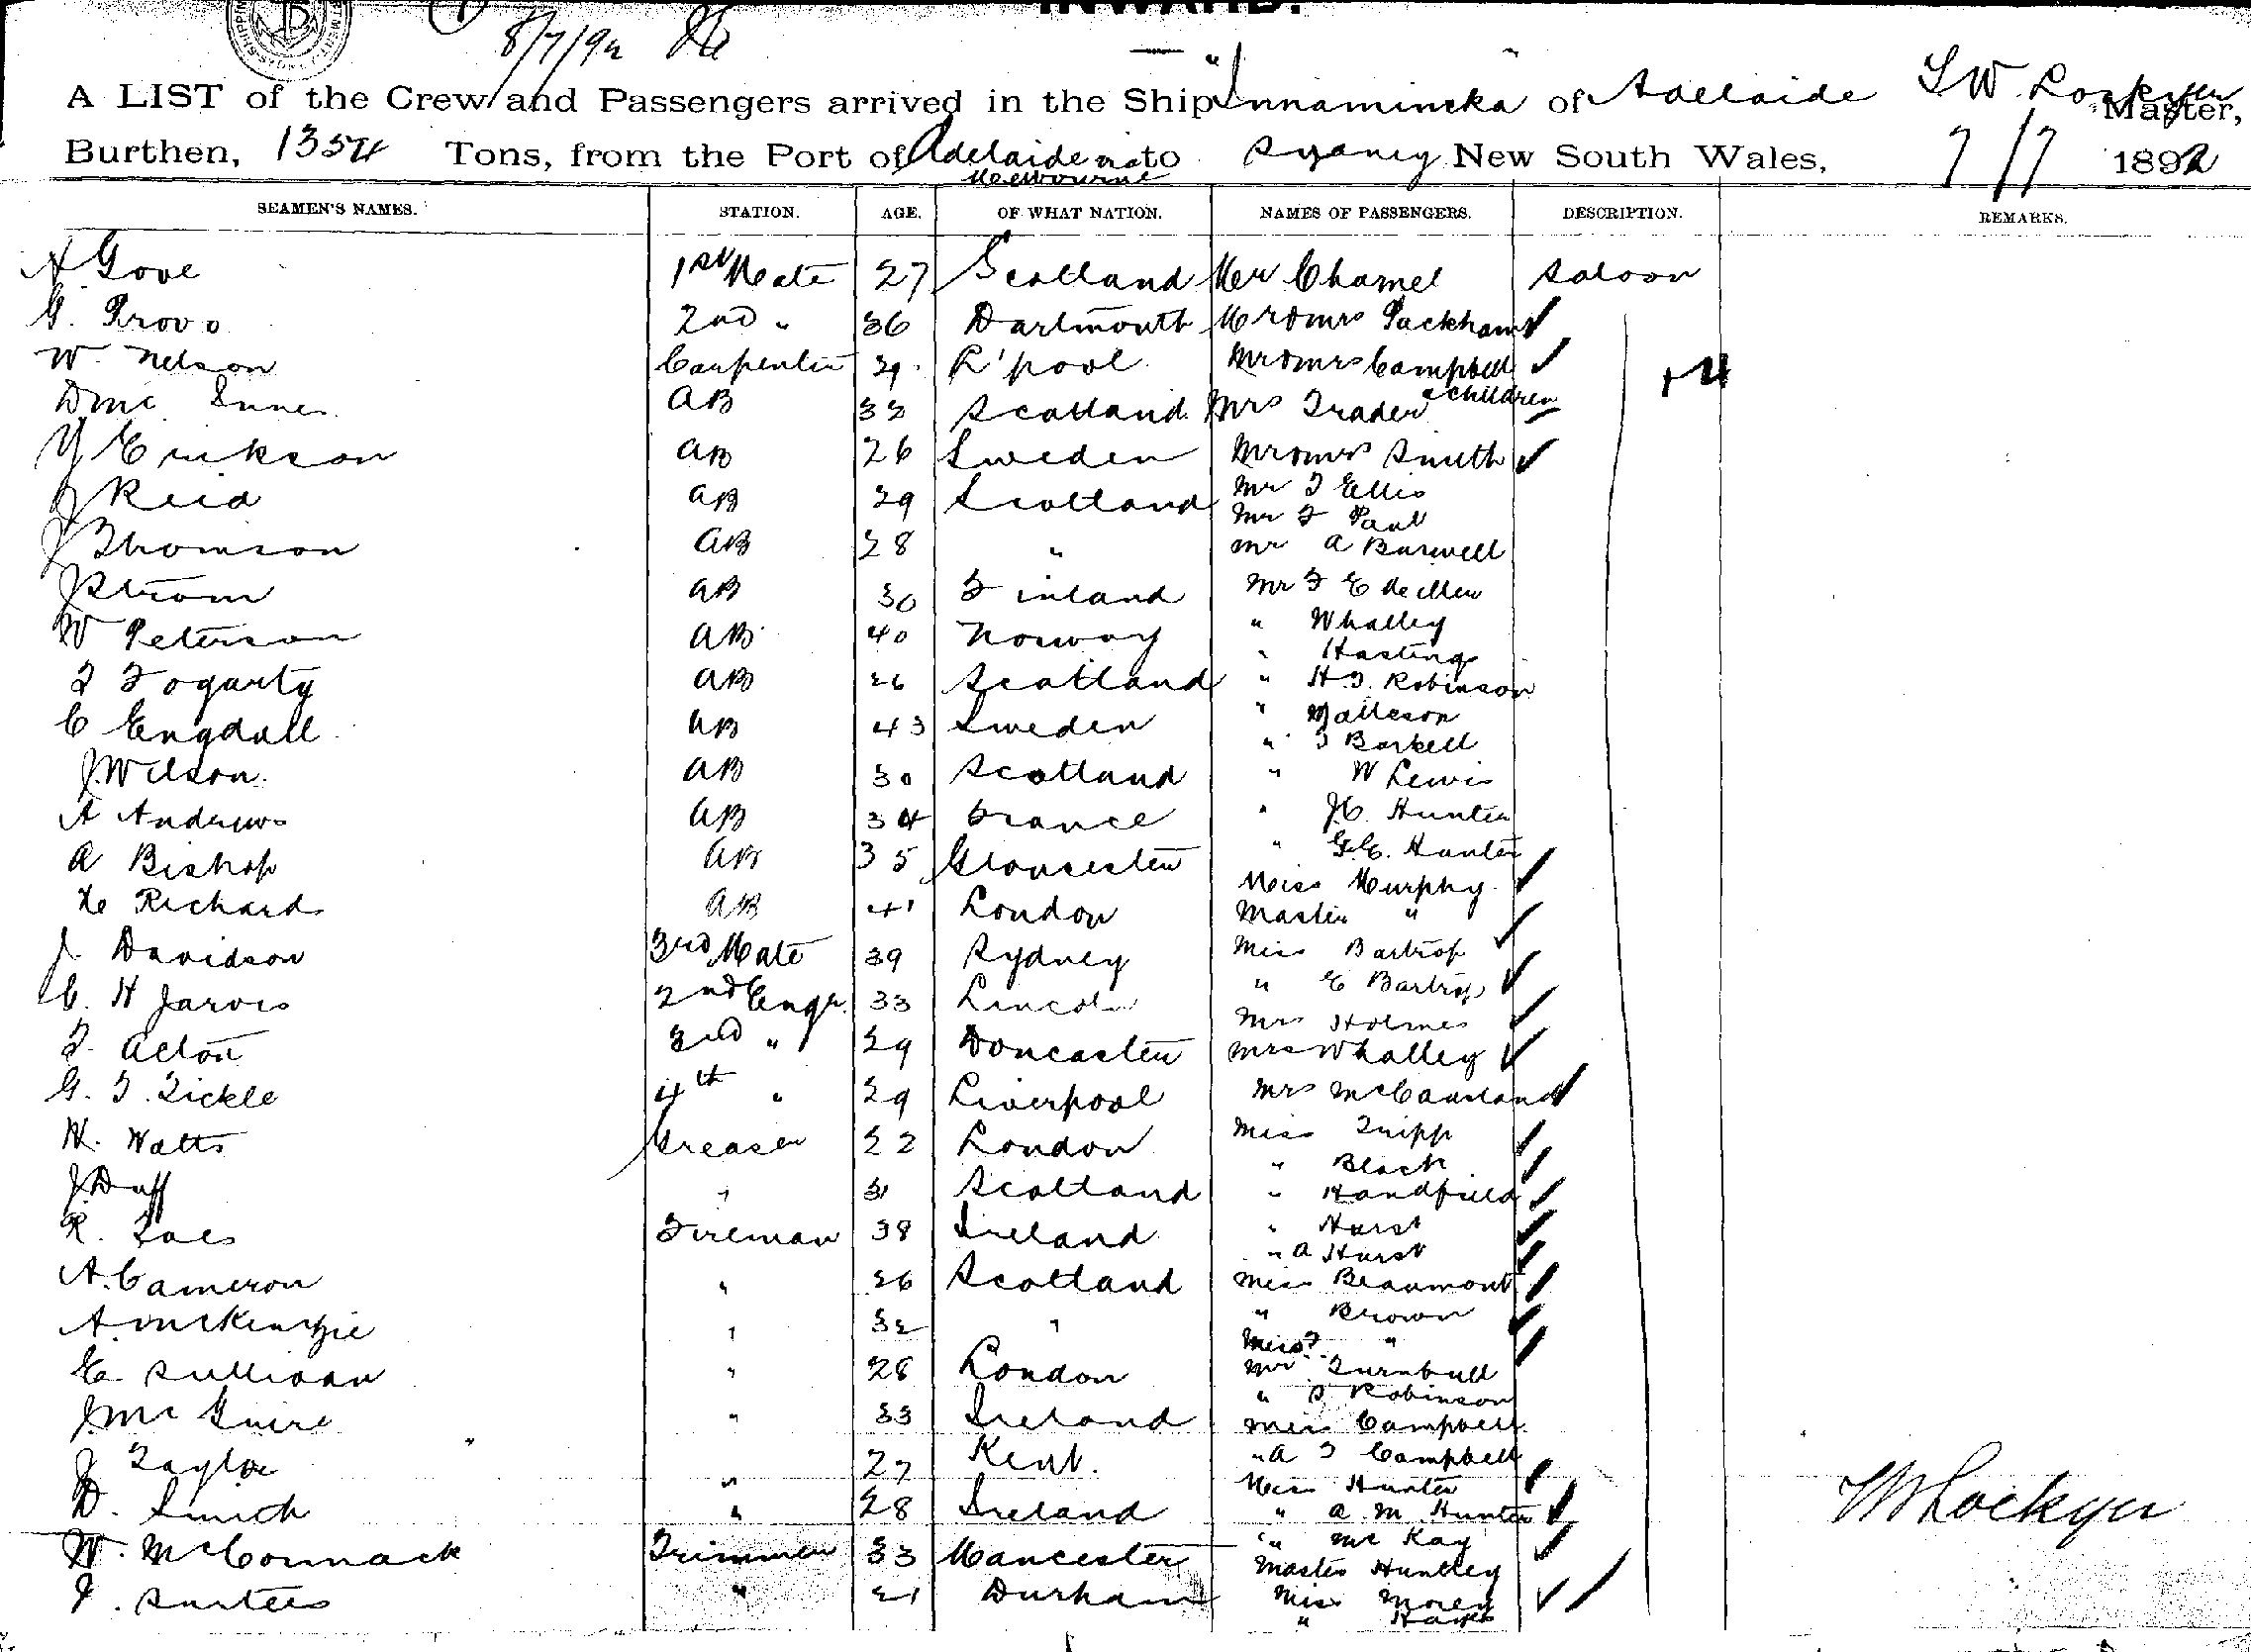 INWARD.
8/7/92
A LIST of the Crew and Passengers arrived in the Ship "Innamincka" of Adelaide Master,
Burthen, 1354 Tons, from the Port of Adelaide via to Sydney New South Wales, 7/7 1892
Melbourne
SEAMEN'S NAMES. STATION. AGE. OF WHAT NATION. NAMES OF PASSENGERS. DESCRIPTION. REMARKS.
A Gove 1st Mate 27 Scotland Mr Chamel Saloon
G. Provo 2nd " 36 Dartmouth Mr & Mrs Packham
W. Nelson Carpenter 29 L'pool Mr & Mrs Campbell
D Mc Innes AB 32 Scotland Mrs Trader & Children
Y Erikson AB 26 Sweden Mr & Mrs Smith
J Reid AB 29 Scotland Mr T Ellis
Mr F Paul
J Thomson AB 28 " Mr A Burwell
J Strom AB 30 Finland Mr F E
W Peterson AB 40 Norway " Whalley
" Hasting
T Fogarty AB 26 Scotland " H.T. Robinson
C Engdall AB 43 Sweden " Matteson
" T Barkell
J Wilson AB 30 Scotland " W Lewis
A Andrews AB 34 France " J.C. Hunter
A Bishop AB 35 Gloucester " G.C. Hunter
Miss Murphy
H Richards AB 41 London Master "
J. Davidson 3rd Mate 39 Sydney Miss Bartrop
C. H Jarvis 2nd Engr. 33 Lincoln " E Bartrop
Mrs Holmes
T. Acton 3rd " 29 Doncaster Mrs Whalley
G. T. Tickle 4th " 29 Liverpool Mrs McCausland
W. Watts Greaser 22 London Miss Tripp
" Black
J. Duff " 31 Scotland " Handfield
R. Fireman 38 Ireland " Hurst
" A Hurst
A. Cameron " 26 Scotland Miss Beaumont
A McKenzie " 32 " " Brown
Miss F "
E Sullivan " 28 London Mr Turnbull
" S Robinson
J Mc Guire " 33 Ireland Miss Campbell
J Taylor " 27 Kent. " A F Campbell
Miss Hunter
D. Smith " 28 Ireland " A. M. Hunter
W. McCormack Trimmer 33 Mancester " Mc Kay
Master Huntley
J. Surtees " 21 Durham Miss Morey
" Hayes
W Lockyer